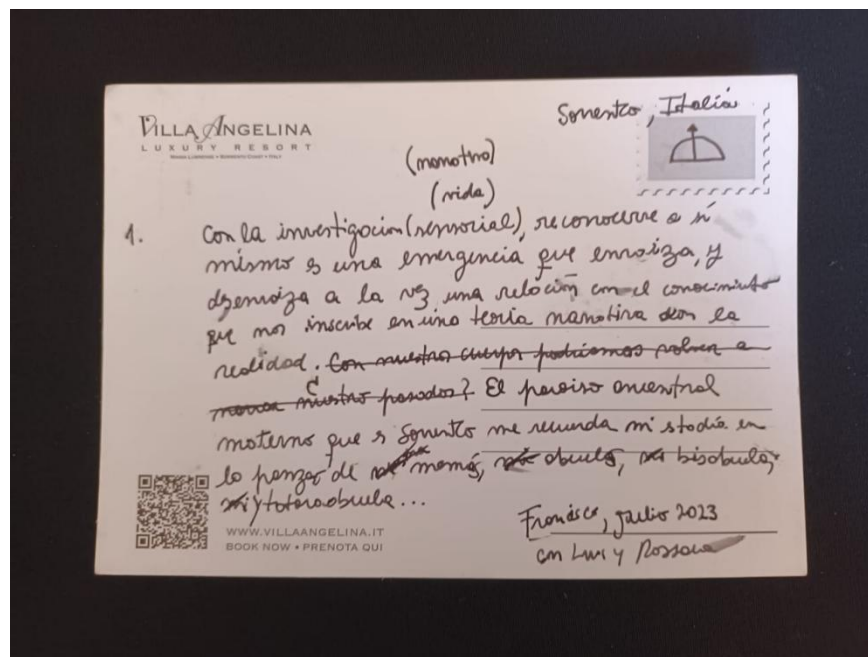 VILLA ANGELINA
LUXURY RESORT
MASSA LUBRENSE • SORRENTO COAST • ITALY
Sorrento, Italia
(narrativo)
(vida)
1.
Con la investigación (sensorial), reconocerse a sí
mismo es una emergencia que enraiza, y
desenraiza a la vez una relación con el conocimiento
que nos inscribe en una teoría narrativa con la
realidad. Con nuestro cuerpo podríamos volver a
nuestro pasados? El paraiso ancestral
materno que es Sorrento me recuerda mi stadía en
la panza de mamá, abuela, bisabuela,
y tatarabuela...
Francisco, julio 2023
con Luis y Rossana
WWW.VILLAANGELINA.IT
BOOK NOW • PRENOTA QUI